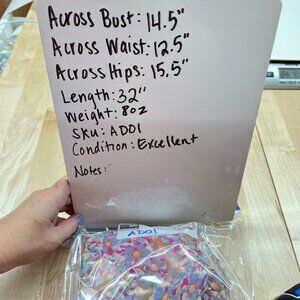 Across Bust: 14.5"
Across Waist: 12.5"
Across Hips: 15.5"
Length: 32"
Weight: 8oz
Sku: AD01
Condition: Excellent
Notes:
AD01